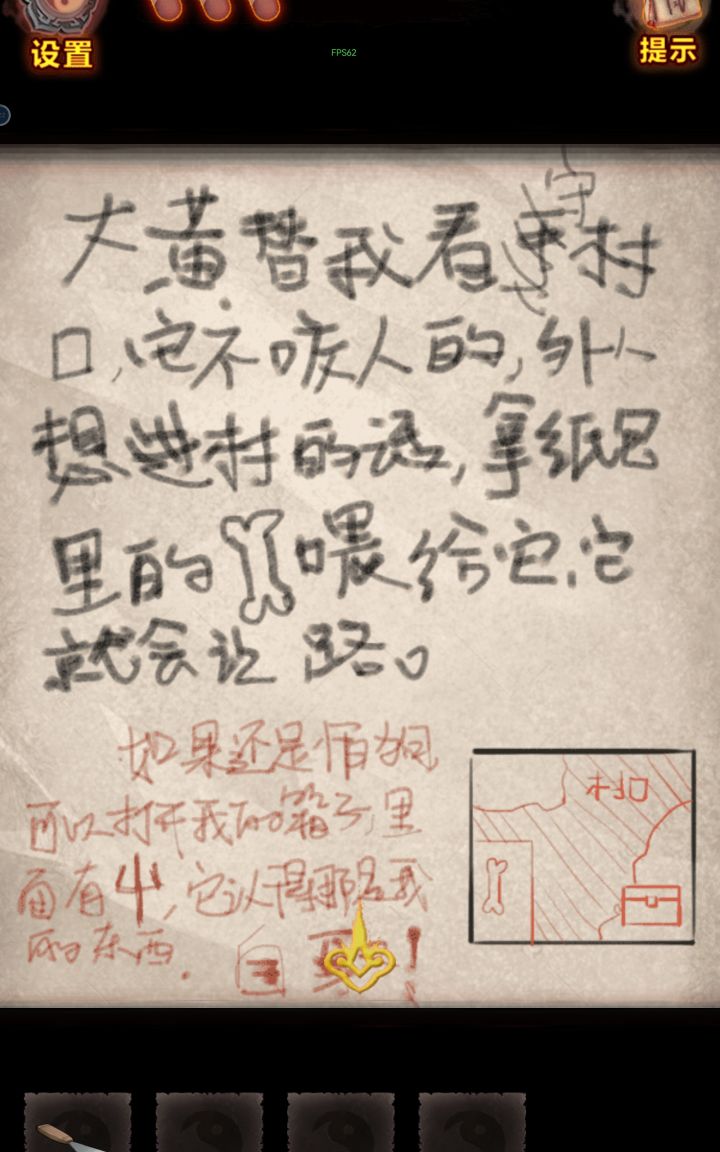 设置
提示
FPS62
守
大黄替我看村
口,它不咬人的,外人
想进村的话,拿纸包
里的喂给它,它
就会让路。
如果还是怕的
可以打开我的箱子,里
面有,它认得那是我
的东西.
村口